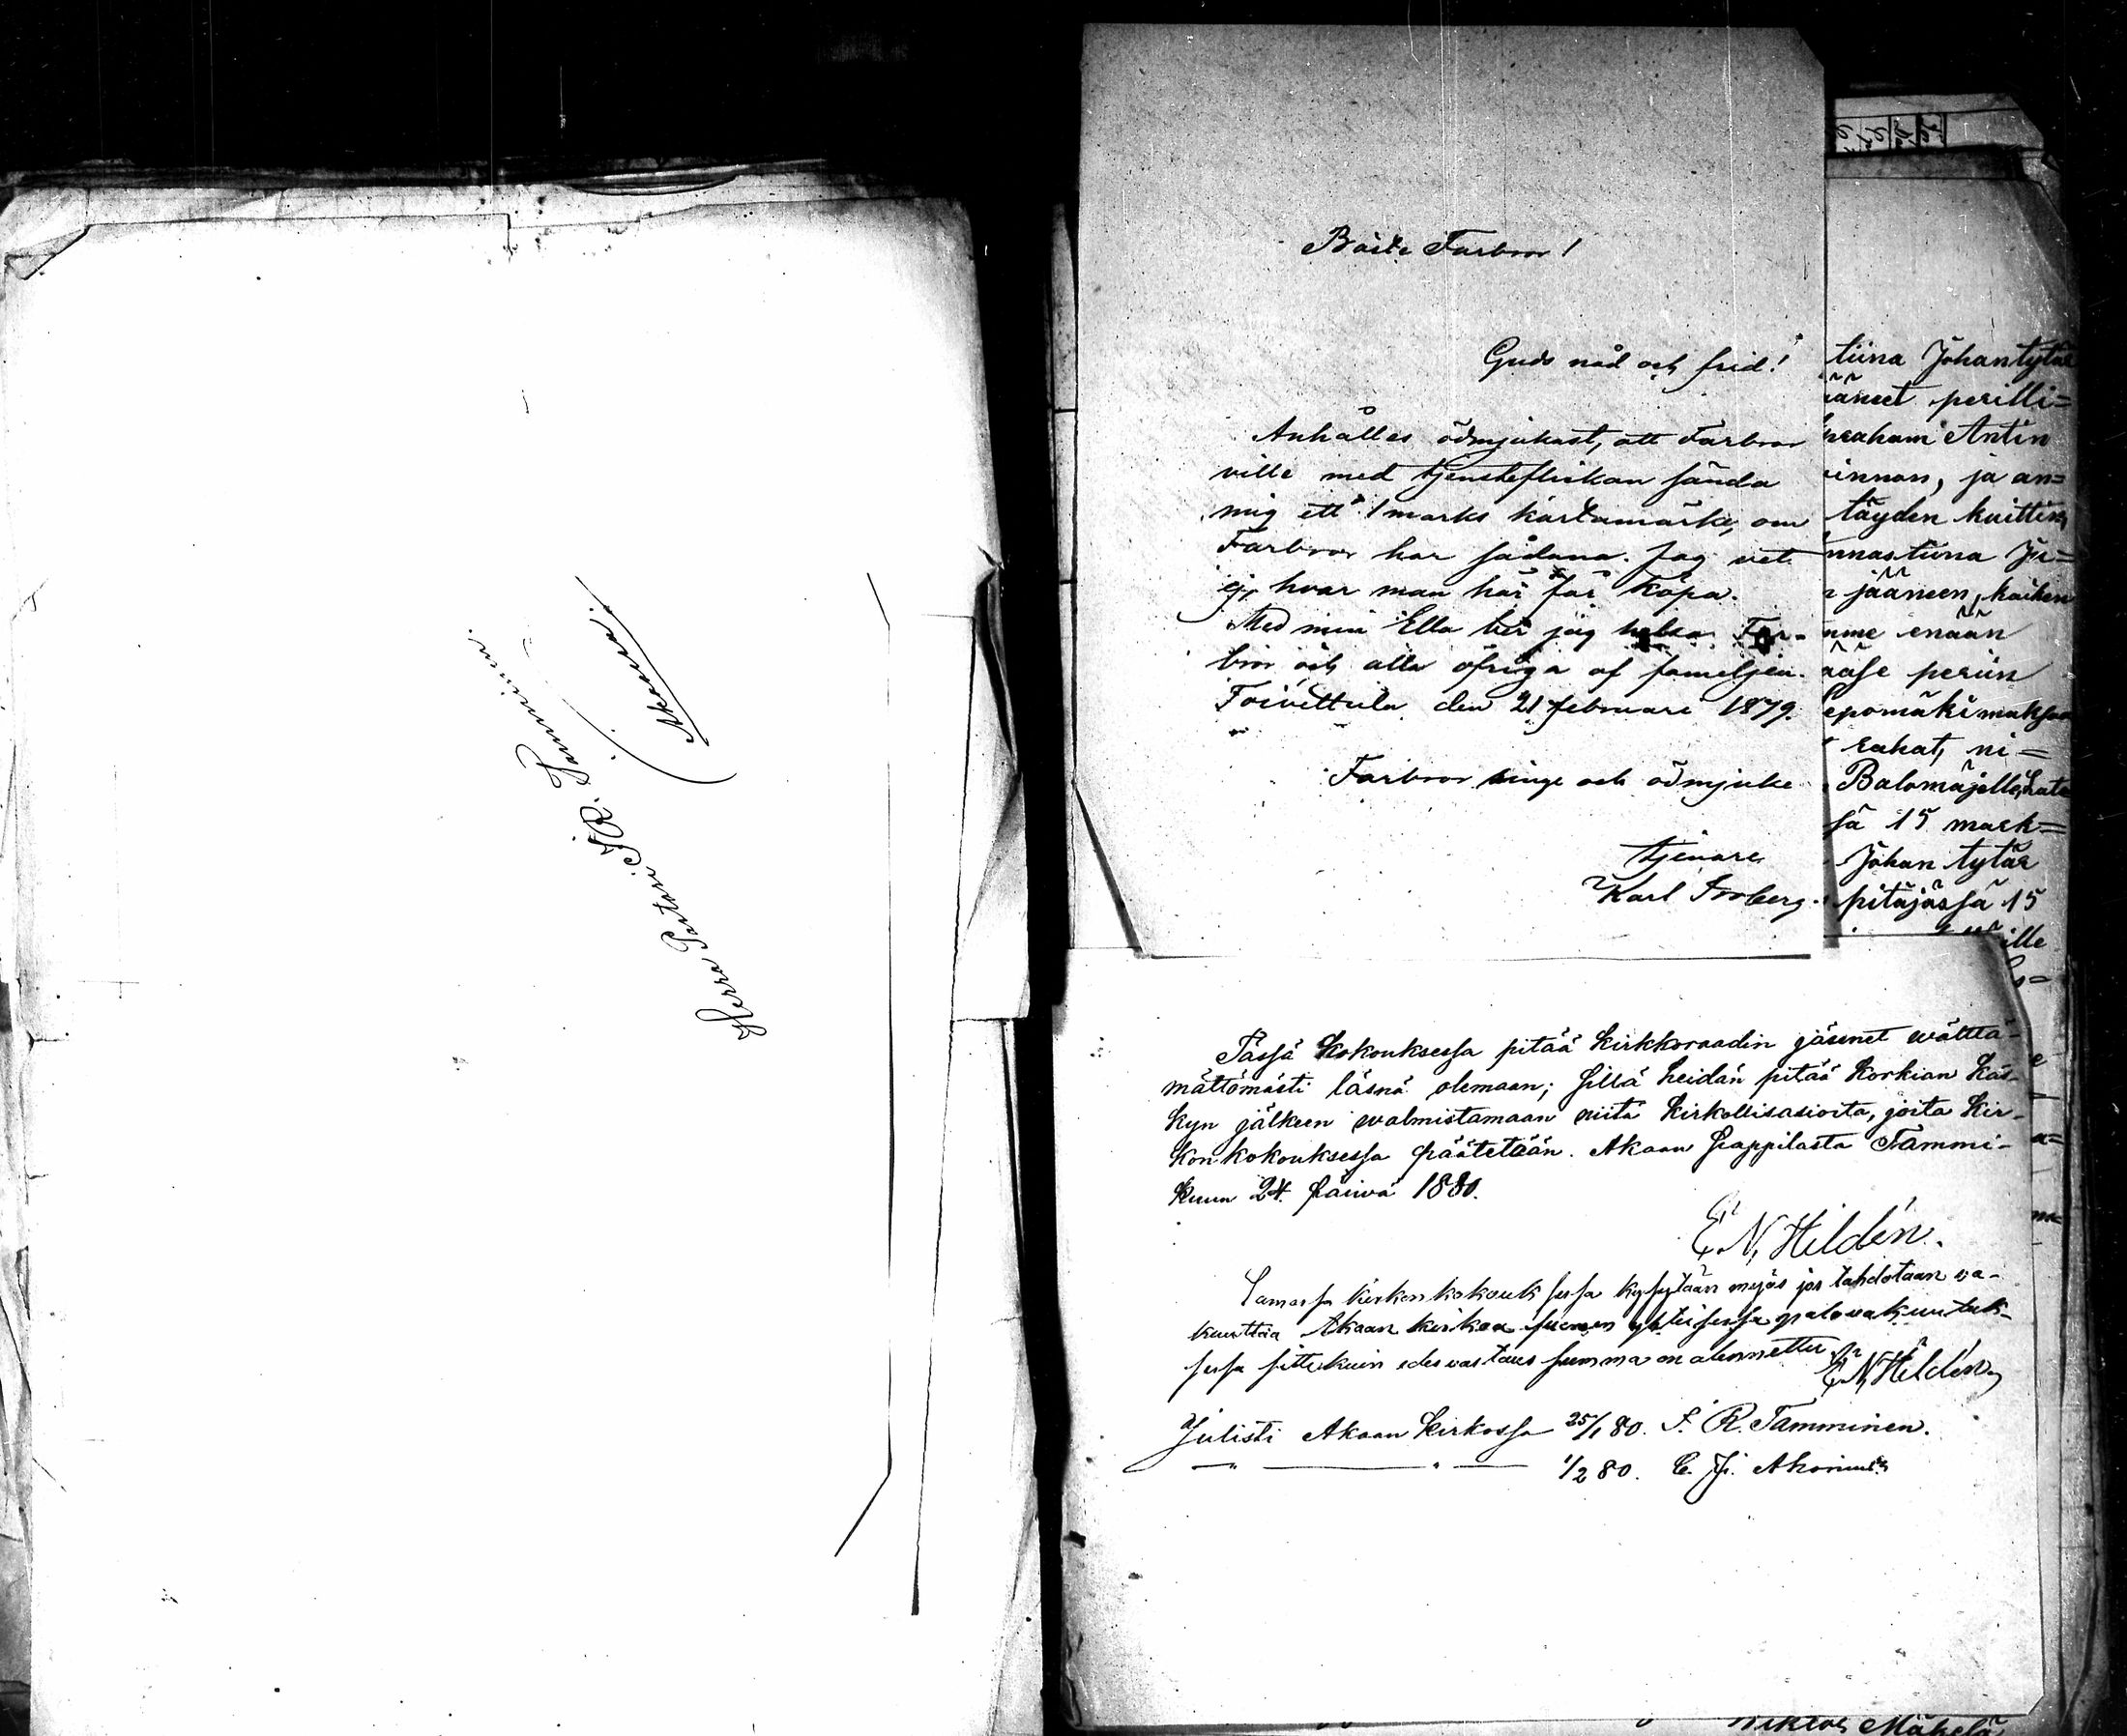 Herra Pastori J. R. Tamminen.
Akaana.
Bäste Farbror!
Guds nåd och frid!
Anhålles ödmjukast, att Farbror
ville med tjensteflickan sända
mig ett 1 marks kartamärke, om
Farbror har sådana. Jag vet
ej, hvar man här får köpa.
Med min Ella ber jag helsa Far-
bror och alla öfriga af familjen.
Toivettula den 21 februari 1879.
Farbrors ringe och ödmjuke
tjenare
Karl Iroberg.
tiina Johantytär
jääneet perilli=
Antin
ja an=
täyden kuittin
jääneen, kaiken
enään
periin
maksaa
rahat, ni=
sä 15 mark=
Johan tytär
pitäjässä 15
ille
Tässä kokouksessa pitää kirkkoraadin jäsenet wälttä-
mättömästi läsnä olemaan; sillä heidän pitää korkian käs-
kyn jälkeen walmistamaan niitä kirkollisasioita, joita kir-
konkokouksessa päätetään. Akaan Pappilasta Tammi-
kuun 24. päiwä 1880.
E. N. Hildén.
Samassa kirkon kokouksessa kysytään myös jos tahdotaan va-
kuuttaa Akaan kirkoa suomen yhteisessä palovakuutuk-
sessa sitte kuin edesvastaus summa on alennettu
E. N. Hildén
Julisti Akaan Kirkossa 25/1 80. J. R. Tamminen.
— " — " — 1/2 80. C. J.
Mäkelä